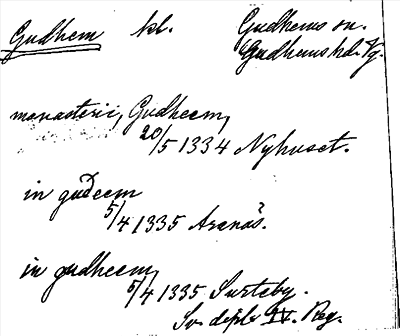 Gudhem kl. Gudhems sn.
Gudhems hd. Vg.
monasterii, Gudheem,
20/5 1334 Nyhuset.
in guđeem
5/4 1335 Aranäs?.
in gudheem,
5/4 1335 Surteby.
Sv. dipl. IV. Reg.